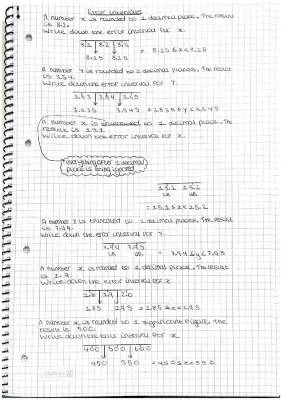 Error Intervals
A number x is rounded to 1 decimal place. The result
is 8.2.
Write down the error interval for x.
8.1 8.2 8.3
8.15 8.25 = 8.15 ≤ x < 8.25
A number Y is rounded to 2 decimal places. The result
is 3.64.
Write down the error interval for Y.
3.63 3.64 3.65
3.635 3.645 = 3.635 ≤ y < 3.645
A number x is truncated to 1 decimal place. The
result is 15.1.
Write down the error interval for x.
everything after 1 decimal
place is being ignored
15.1 15.2
LB UB
= 15.1 ≤ x < 15.2
A number Y is truncated to 2 decimal places. The result
is 7.94.
Write down the error interval for Y.
7.94 7.95
LB UB = 7.94 ≤ y < 7.95
A number x is rounded to 1 decimal place. The
is 1.9
Write down the error interval for x
1.8 1.9 2.0
1.85 1.95 = 1.85 ≤ x < 1.95
A number x is rounded to 1 significant figure. The
result is 500.
Write down the error interval for x
400 500 600
450 550 = 450 ≤ x < 550